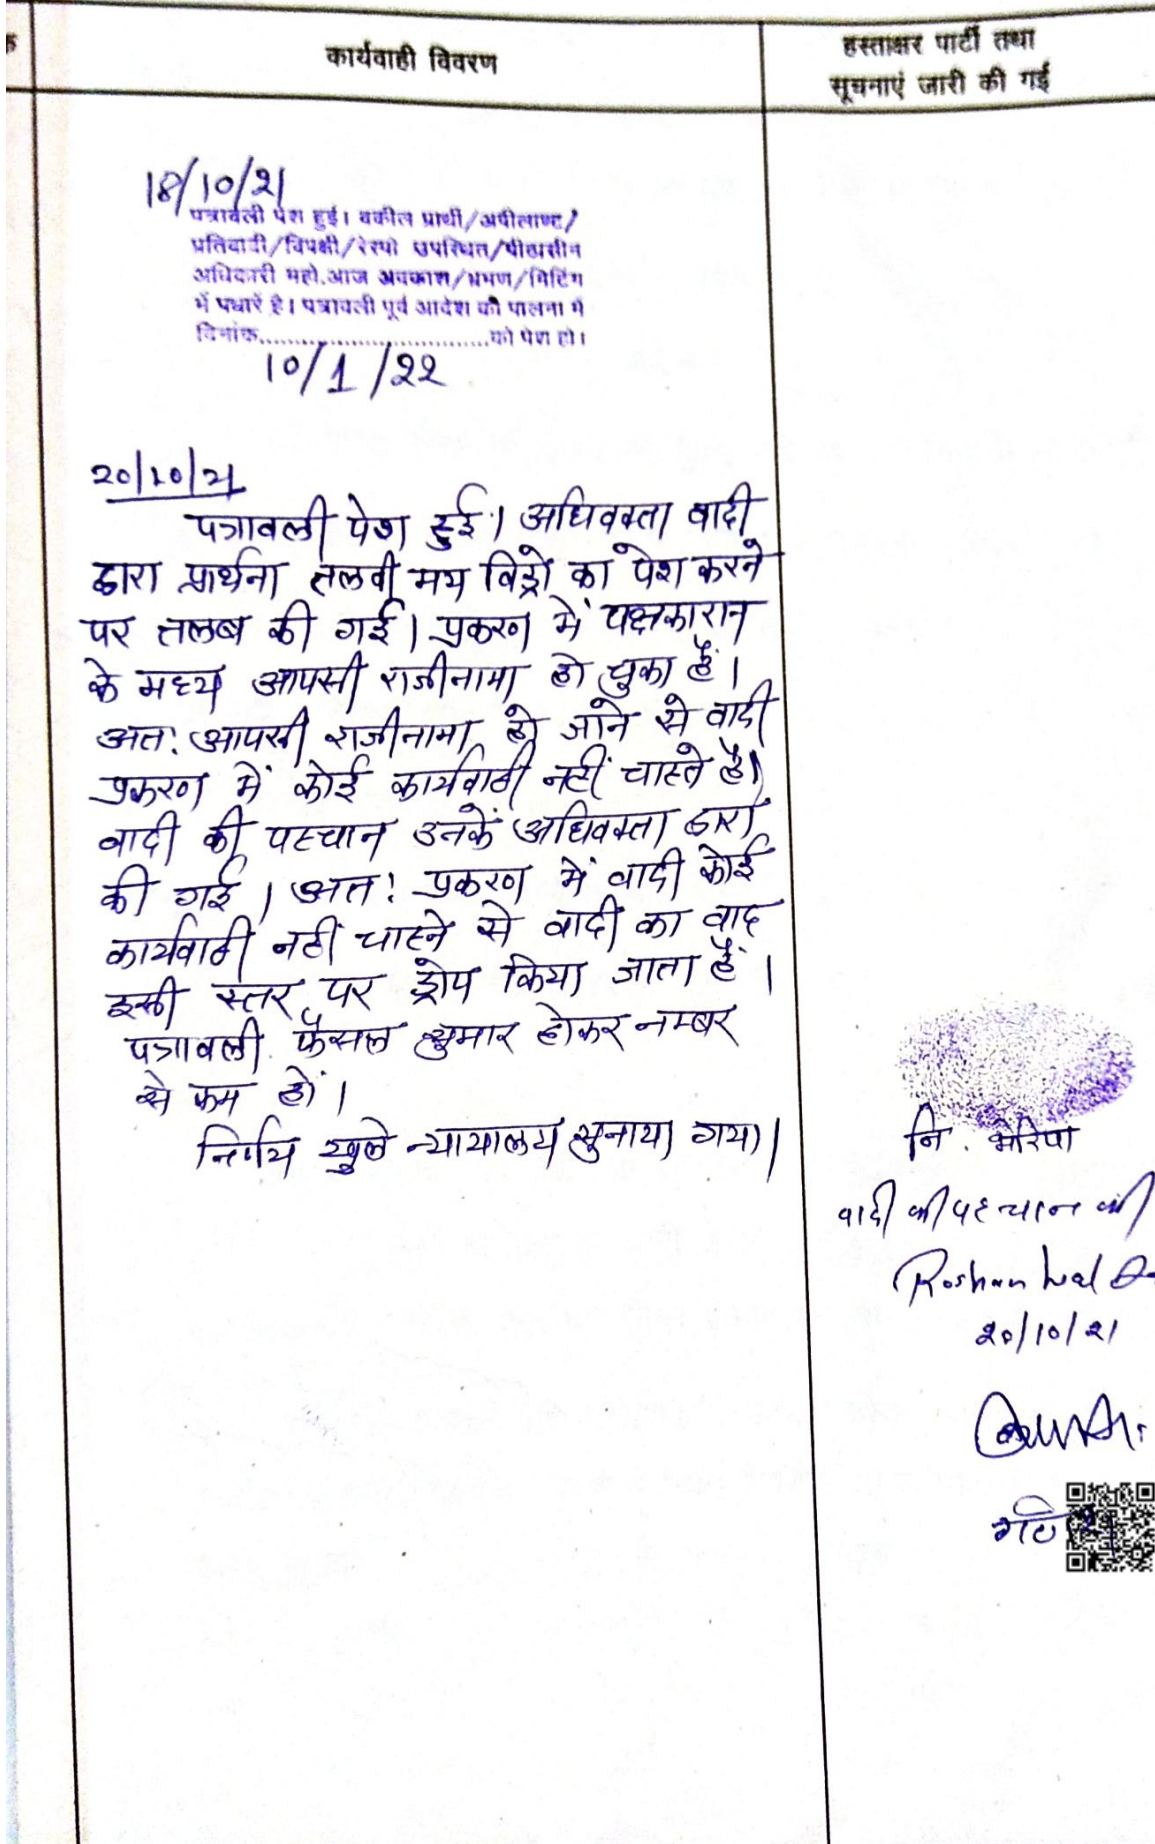 कार्यवाही विवरण
हस्ताक्षर पार्टी तथा
सूचनाएं जारी की गई
18/10/21
पत्रावली पेश हुई। वकील प्रार्थी/अपीलाण्ट/
प्रतिवादी/विपक्षी/रेस्पो उपस्थित/पीठासीन
अधिकारी महो.आज अवकाश/भ्रमण/मिटिंग
में पधारें है। पत्रावली पूर्व आदेश की पालना में
दिनांक................................को पेश हो।
10/1/22
20/10/21
पत्रावली पेश हुई। अधिवक्ता वादी
द्वारा प्रार्थना तलवी मय विड्रो का पेश करने
पर तलब की गई। प्रकरण में पक्षकारान
के मध्य आपसी राजीनामा हो चुका हैं।
अत: आपसी राजीनामा हो जाने से वादी
प्रकरण में कोई कार्यवाही नहीं चाहते है।
वादी की पहचान उनके अधिवक्ता द्वारा
की गई। अत: प्रकरण में वादी कोई
कार्यवाही नहीं चाहने से वादी का वाद
इसी स्तर पर ड्रोप किया जाता हैं।
पत्रावली फैसल शुमार होकर नम्बर
से कम हों।
निर्णय खुले न्यायालय सुनाया गया।
नि. भेरिया
वादी की पहचान की
Roshan Lal
20/10/21